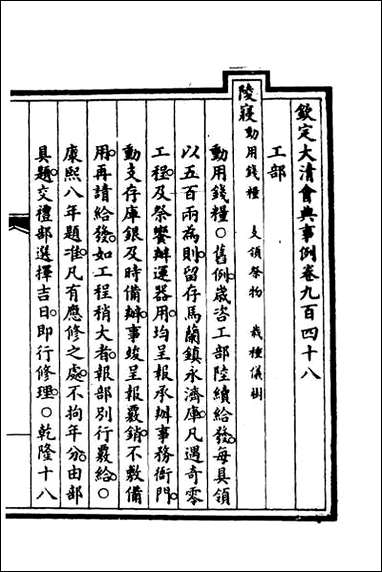 欽定大清會典事例卷九百四十八
工部
陵寢動用錢糧 支領祭物 栽種儀樹
動用錢糧○舊例歲咨工部陸續給發每具領
以五百兩為則留存馬蘭鎮永濟庫凡遇奇零
工程及祭饗辦運器用均呈報承辦事務衙門
動支存庫銀及時備辦事竣呈報覈銷不敷備
用再請給發如工程稍大者報部別行覈給○
康熙八年題准凡有應修之處不拘年分由部
具題交禮部選擇吉日即行修理○乾隆十八